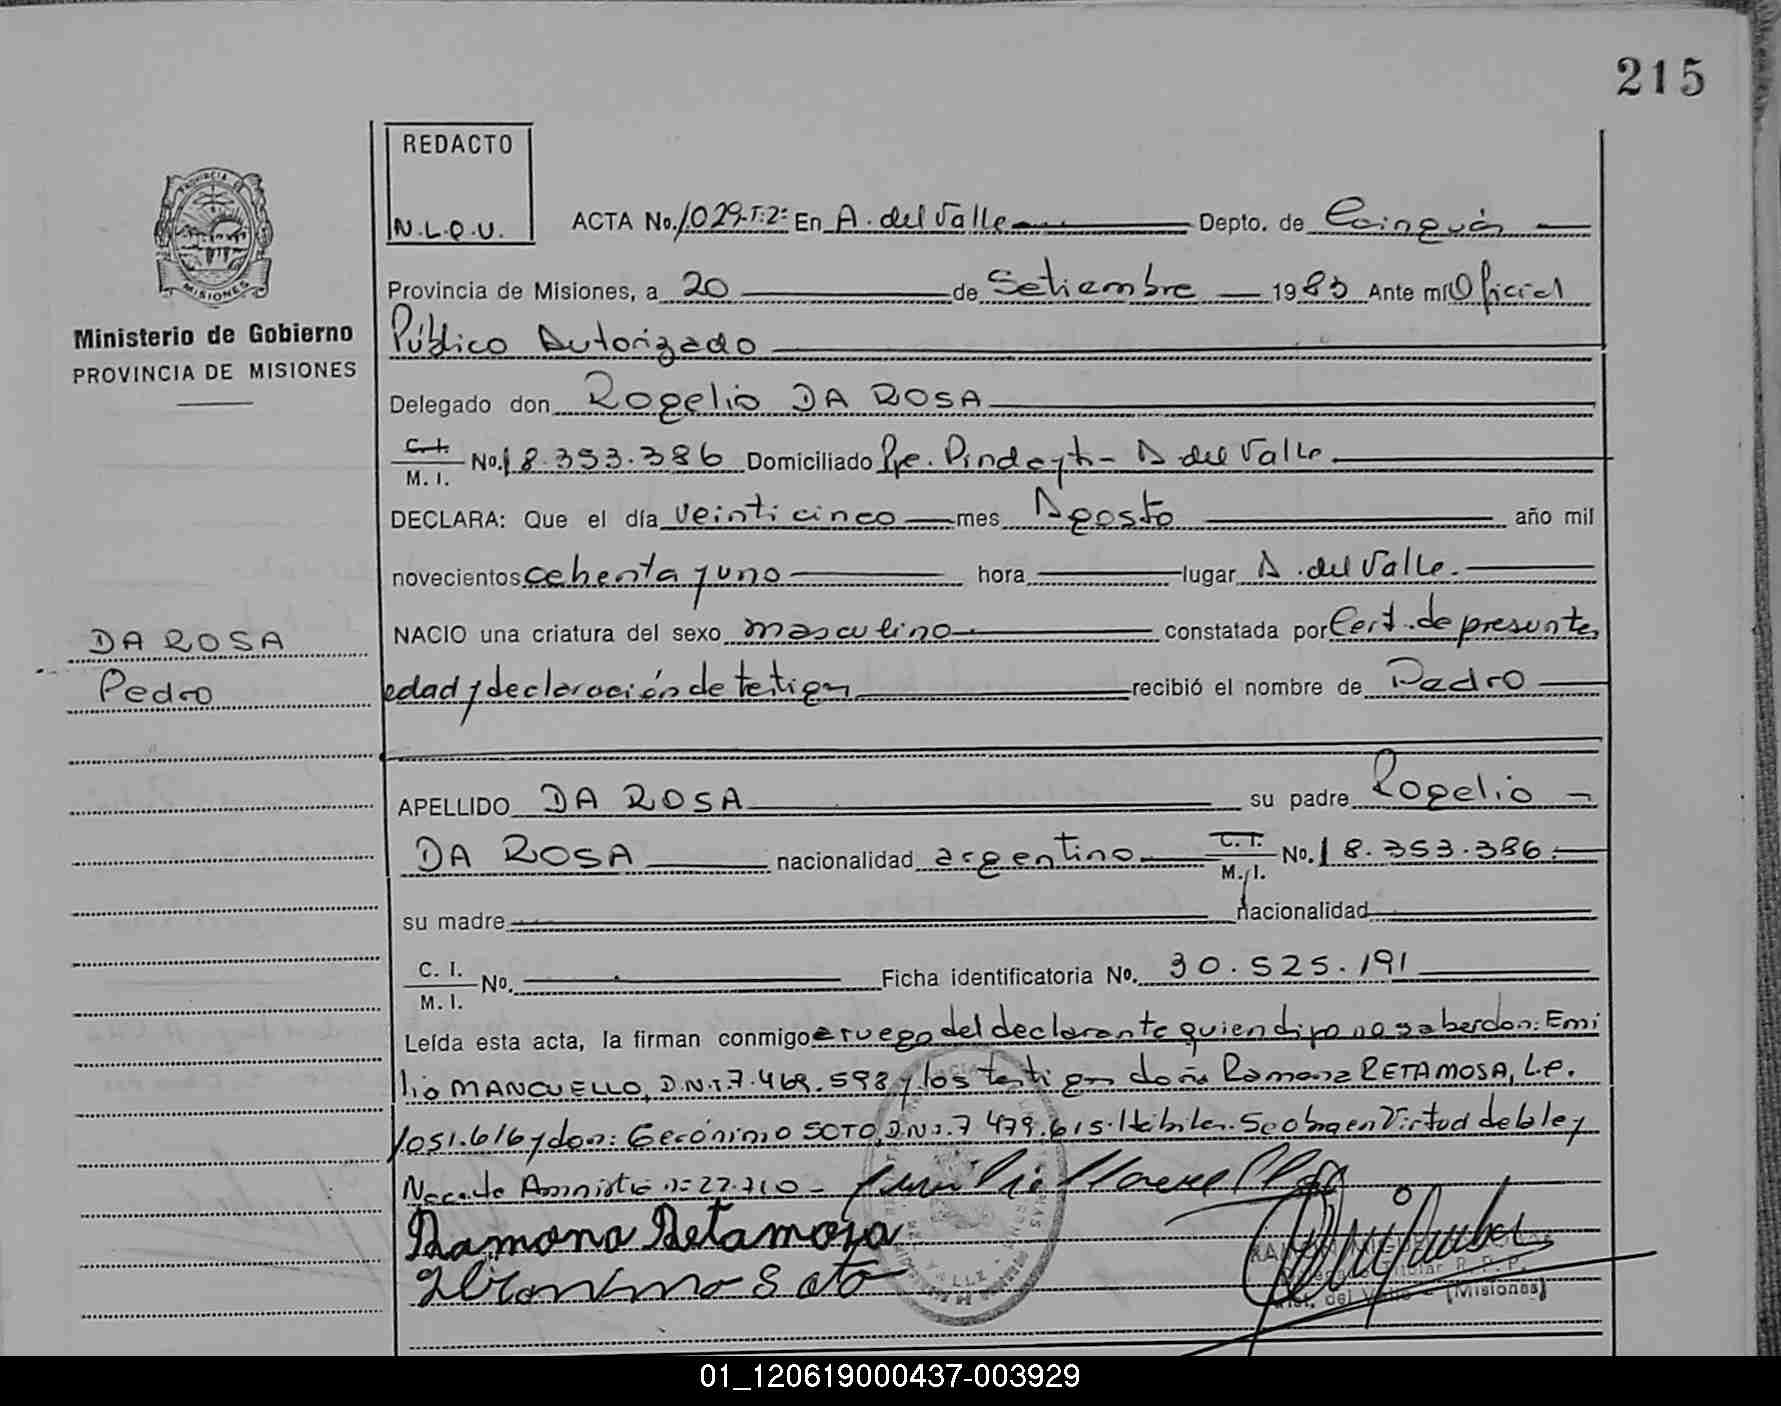 215
REDACTO
N.L.Q.U.
ACTA No. 1029-T:2º En A. del Valle Depto. de Cainguás
Provincia de Misiones, a 20 de Setiembre 1983 Ante mí Oficial
Público Autorizado
Ministerio de Gobierno
PROVINCIA DE MISIONES
Delegado don Rogelio DA ROSA
C.I. M. I. No. 18.353.386 Domiciliado Pje. Pindayti - A del Valle
DECLARA: Que el día veinticinco mes Agosto año mil
novecientos ochenta y uno hora lugar A. del Valle.
DA ROSA
NACIO una criatura del sexo masculino constatada por Cert. de presunta
Pedro
edad y declaración de testigos recibió el nombre de Pedro
APELLIDO DA ROSA su padre Rogelio
DA ROSA nacionalidad argentino C. I. M. I. No. 18.353.386.
su madre nacionalidad
C. I. M. I. No. Ficha identificatoria No. 30.525.191
Leída esta acta, la firman conmigo a ruego del declarante quien dijo no saber don: Emi
lio MANCUELLO, D.N.I. 7.469.598 y los testigos doña Ramona RETAMOSA, L.C.
1051.616 y don: Gerónimo SOTO, D.N.I. 7 479.615. Hábiles. Se obra en Virtud de la ley
Nac. de Amnistía nº 22.710 -
Ramona Retamoza
Geronimo Soto
R. P. P.
del Valle - (Misiones)
01_120619000437-003929